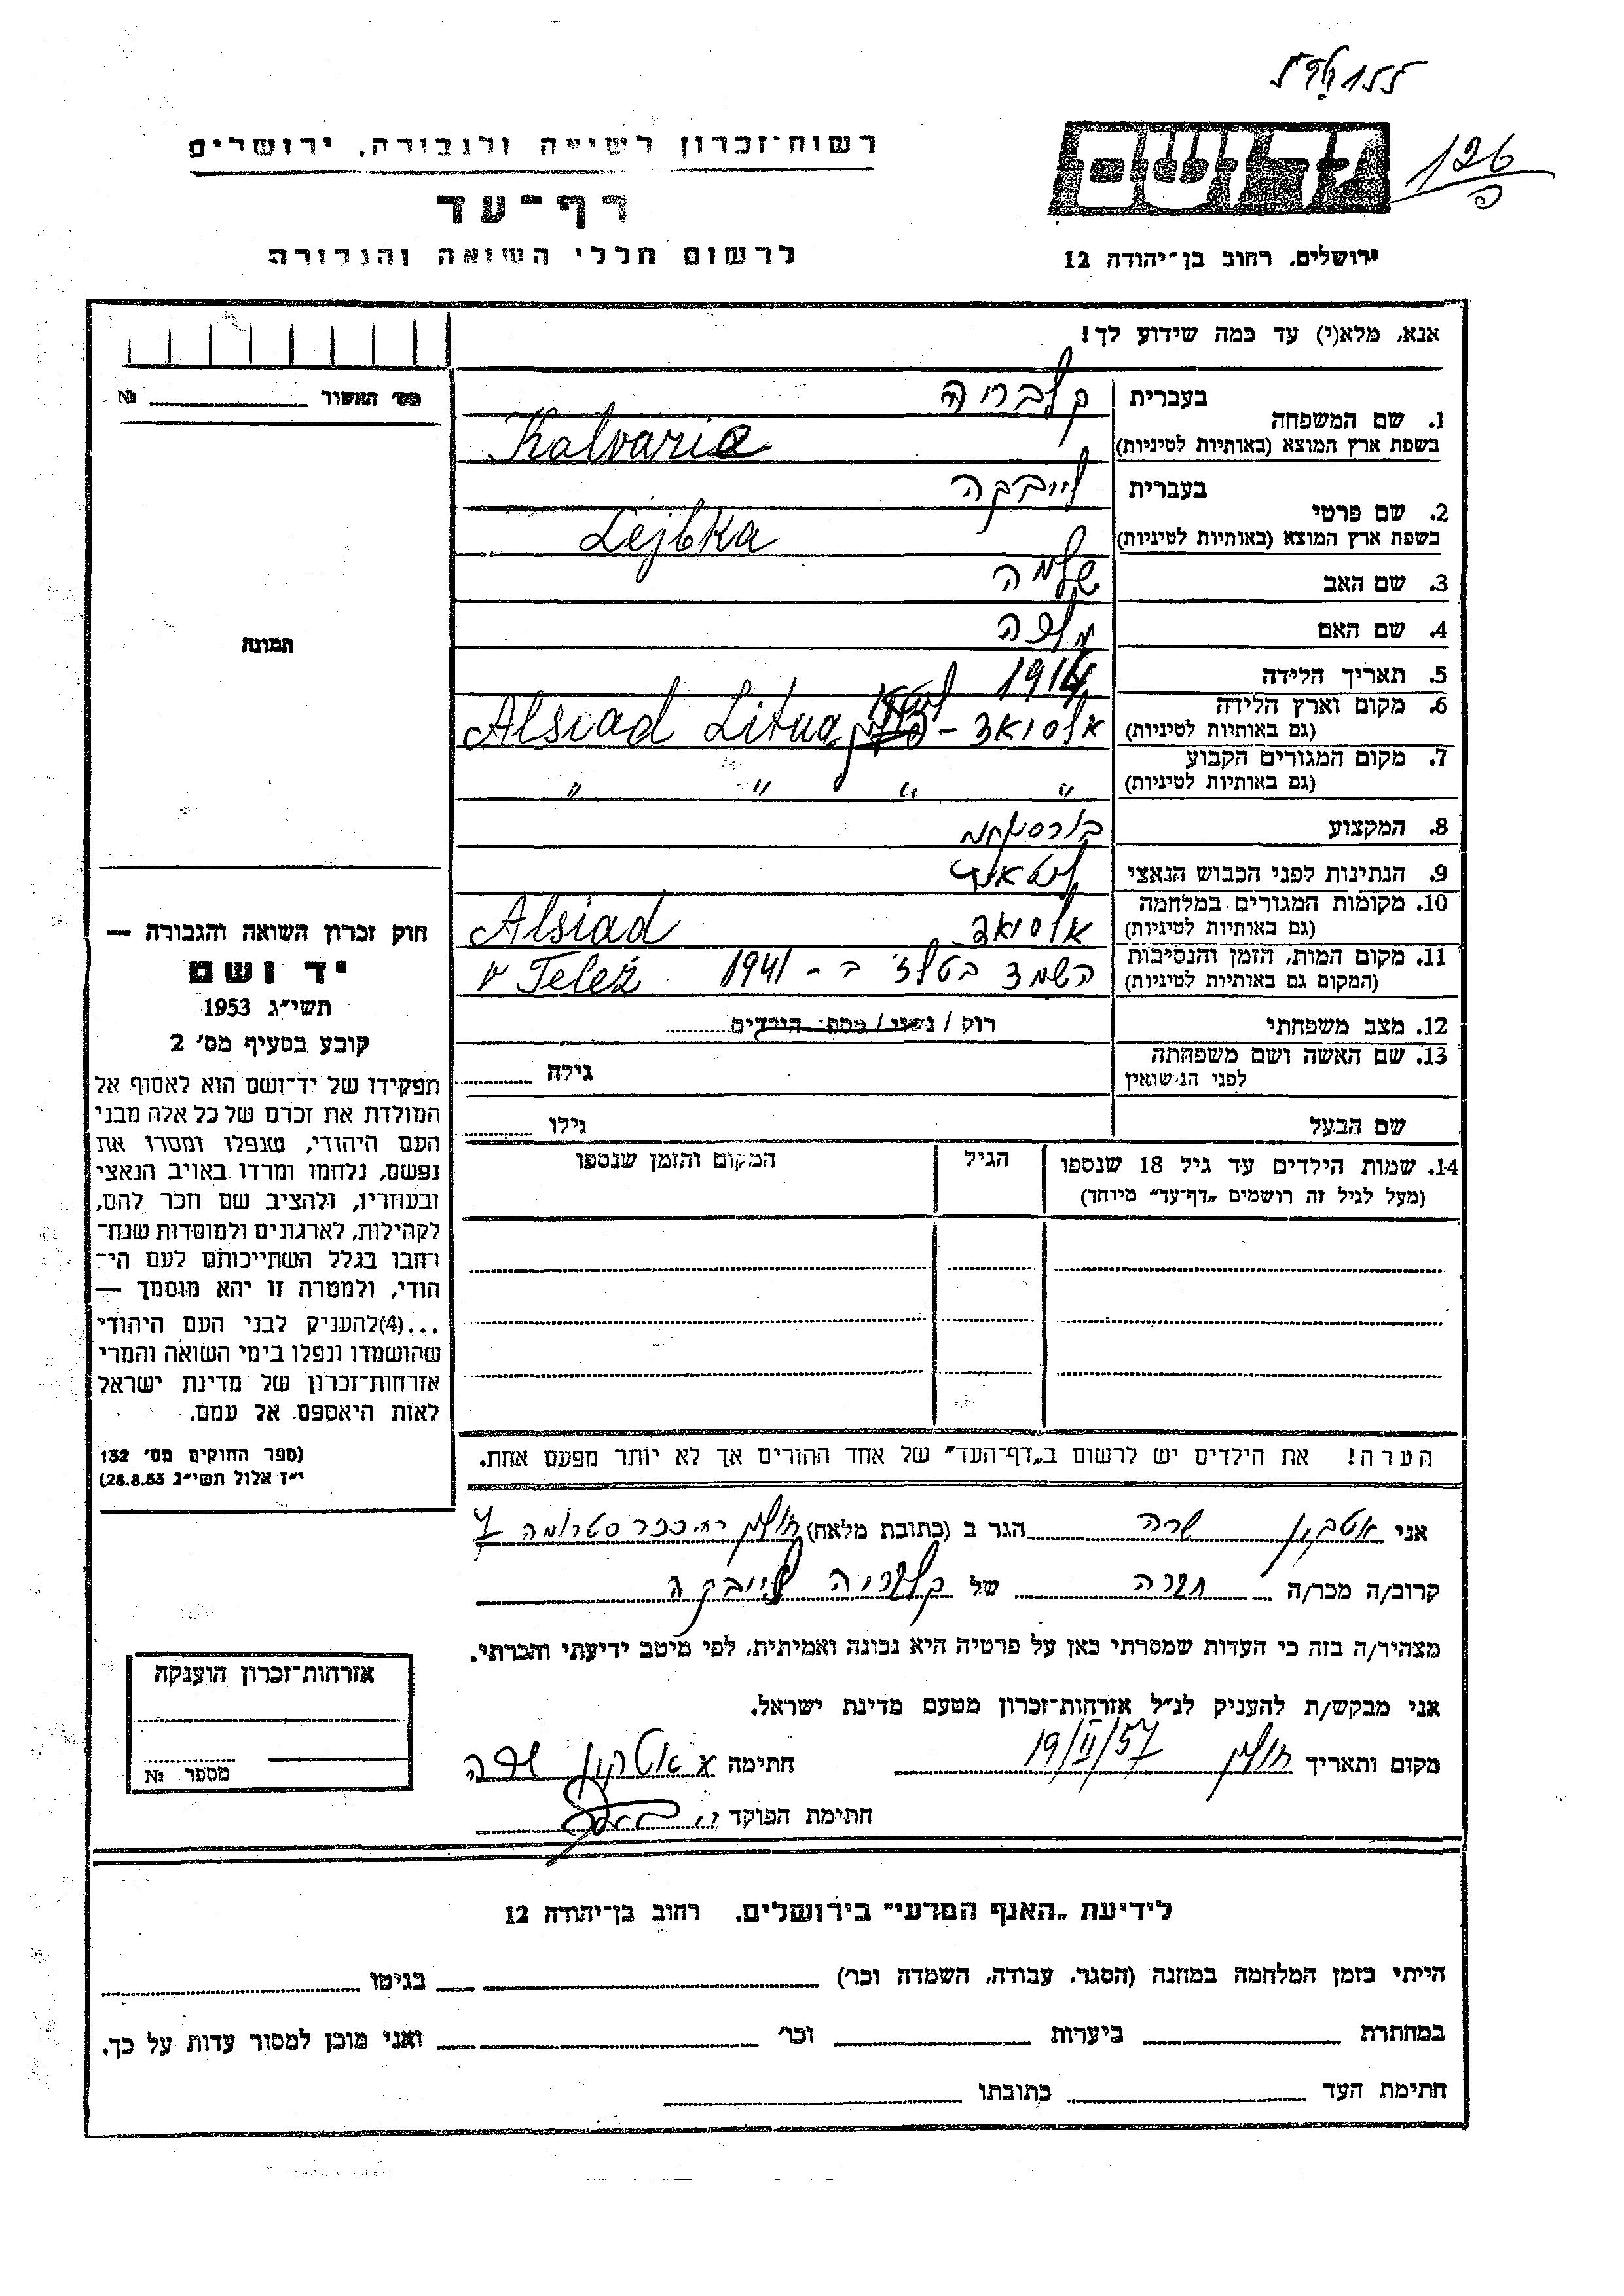 126
ה
יד ושם
רשות־זכרון לשואה ולגבורה, ירושלים
דף־עד
לרשום חללי השואה והגבורה
ירושלים, רחוב בן־יהודה 12
אנא, מלא(י) עד כמה שידוע לך!
מס׳ האשור № ........
1. שם המשפחה
בעברית קלבריה
בשפת ארץ המוצא (באותיות לטיניות) Kalvaria
2. שם פרטי
בעברית לייבקה
בשפת ארץ המוצא (באותיות לטיניות) Lejbka
3. שם האב שלמה
4. שם האם
5. תאריך הלידה 1914
6. מקום וארץ הלידה
(גם באותיות לטיניות) אלסיאד - Alsiad Litua
7. מקום המגורים הקבוע
(גם באותיות לטיניות) " " " "
8. המקצוע
9. הנתינות לפני הכבוש הנאצי
10. מקומות המגורים במלחמה
(גם באותיות לטיניות) אלסיאד Alsiad
11. מקום המות, הזמן והנסיבות
(המקום גם באותיות לטיניות) השמד בטלז׳ ב - 1941 v Telež
12. מצב משפחתי רוק / נשוי / מספר הילדים ........
13. שם האשה ושם משפחתה
לפני הנשואין גילה ........
שם הבעל גילו ........
14. שמות הילדים עד גיל 18 שנספו
(מעל לגיל זה רושמים „דף־עד" מיוחד)
הגיל
המקום והזמן שנספו
הערה! את הילדים יש לרשום ב„דף־העד" של אחד ההורים אך לא יותר מפעם אחת.
תמונה
חוק זכרון השואה והגבורה —
יד ושם
תשי״ג 1953
קובע בסעיף מס׳ 2
תפקידו של יד־ושם הוא לאסוף אל
המולדת את זכרם של כל אלה מבני
העם היהודי, שנפלו ומסרו את
נפשם, נלחמו ומרדו באויב הנאצי
ובעוזריו, ולהציב שם וזכר להם,
לקהילות, לארגונים ולמוסדות שנח־
רבו בגלל השתייכותם לעם הי־
הודי, ולמטרה זו יהא מוסמך —
...(4)להעניק לבני העם היהודי
שהושמדו ונפלו בימי השואה והמרי
אזרחות־זכרון של מדינת ישראל
לאות היאספם אל עמם.
(ספר החוקים מס׳ 132
י״ז אלול תשי״ג 28.8.53)
אני אטקין שרה הגר ב (כתובת מלאה) חולון רח. ככר סטרומה 7
קרוב/ה מכר/ה חברה של קלבריה לייבקה
מצהיר/ה בזה כי העדות שמסרתי כאן על פרטיה היא נכונה ואמיתית, לפי מיטב ידיעתי והכרתי.
אני מבקש/ת להעניק לנ״ל אזרחות־זכרון מטעם מדינת ישראל.
מקום ותאריך חולון 19/II/57 חתימה x אטקין שרה
חתימת הפוקד
אזרחות־זכרון הוענקה
מספר №
לידיעת „האגף המדעי" בירושלים, רחוב בן־יהודה 12
הייתי בזמן המלחמה במחנה (הסגר, עבודה, השמדה וכו׳) ........ בגיטו ........
במחתרת ........ ביערות ........ וכו׳ ........ ואני מוכן למסור עדות על כך.
חתימת העד ........ כתובתו ........